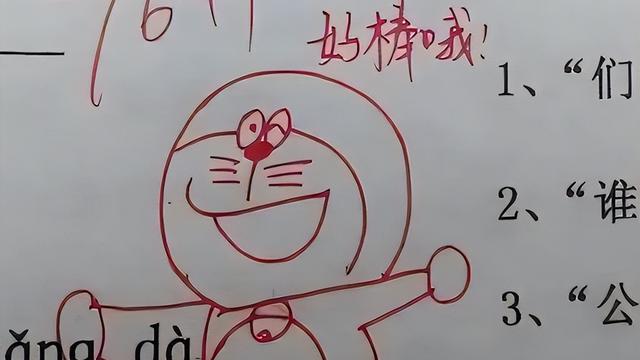 好棒哦!
1、“们
2、“谁
3、“公
ǎng dà